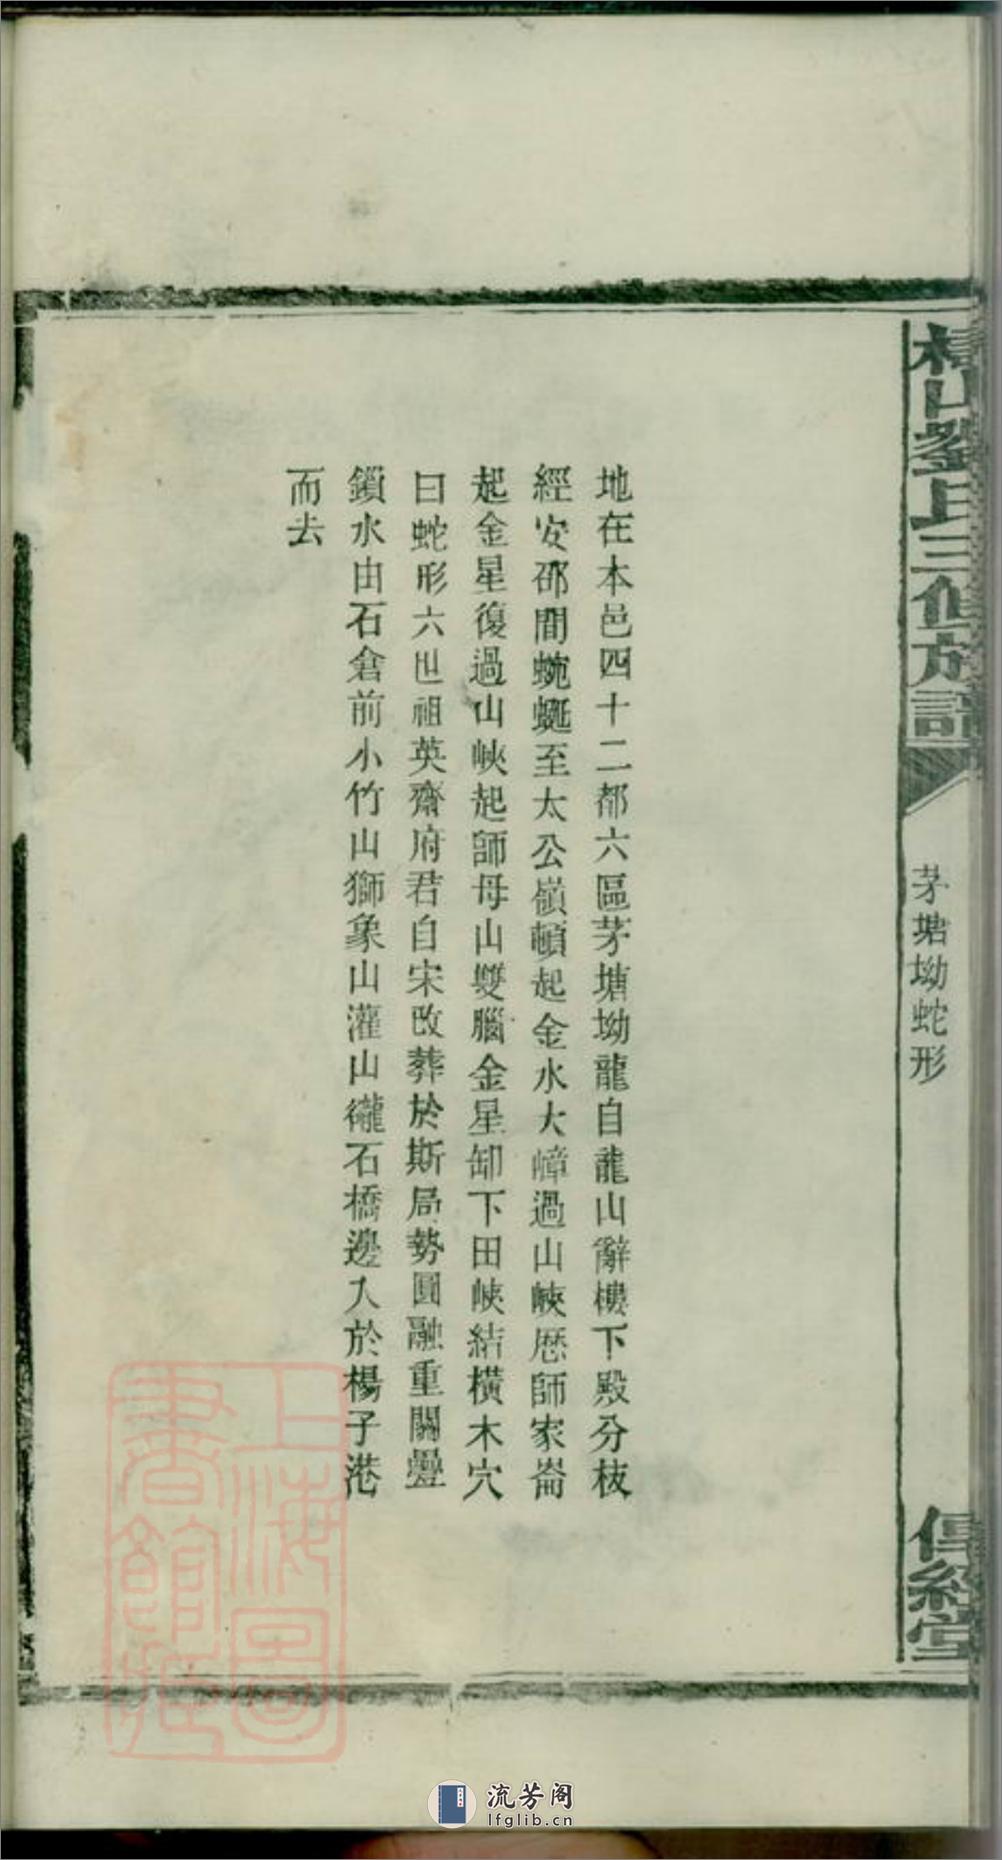 山劉氏三修族譜
茅塘坳蛇形
傳經堂
地在本邑四十二都六區茅塘坳龍自龍山辭樓下殿分枝
經安邵間蜿蜒至太公嶺頓起金水大嶂過山峽歷師家崙
起金星復過山峽起師母山雙腦金星卸下田峽結橫木穴
曰蛇形六世祖英齋府君自宋改葬於斯局勢圓融重關疊
鎖水由石倉前小竹山獅象山灌山石橋邊入於楊子港
而去
上海圖書館藏
流芳阁
lfglib.cn